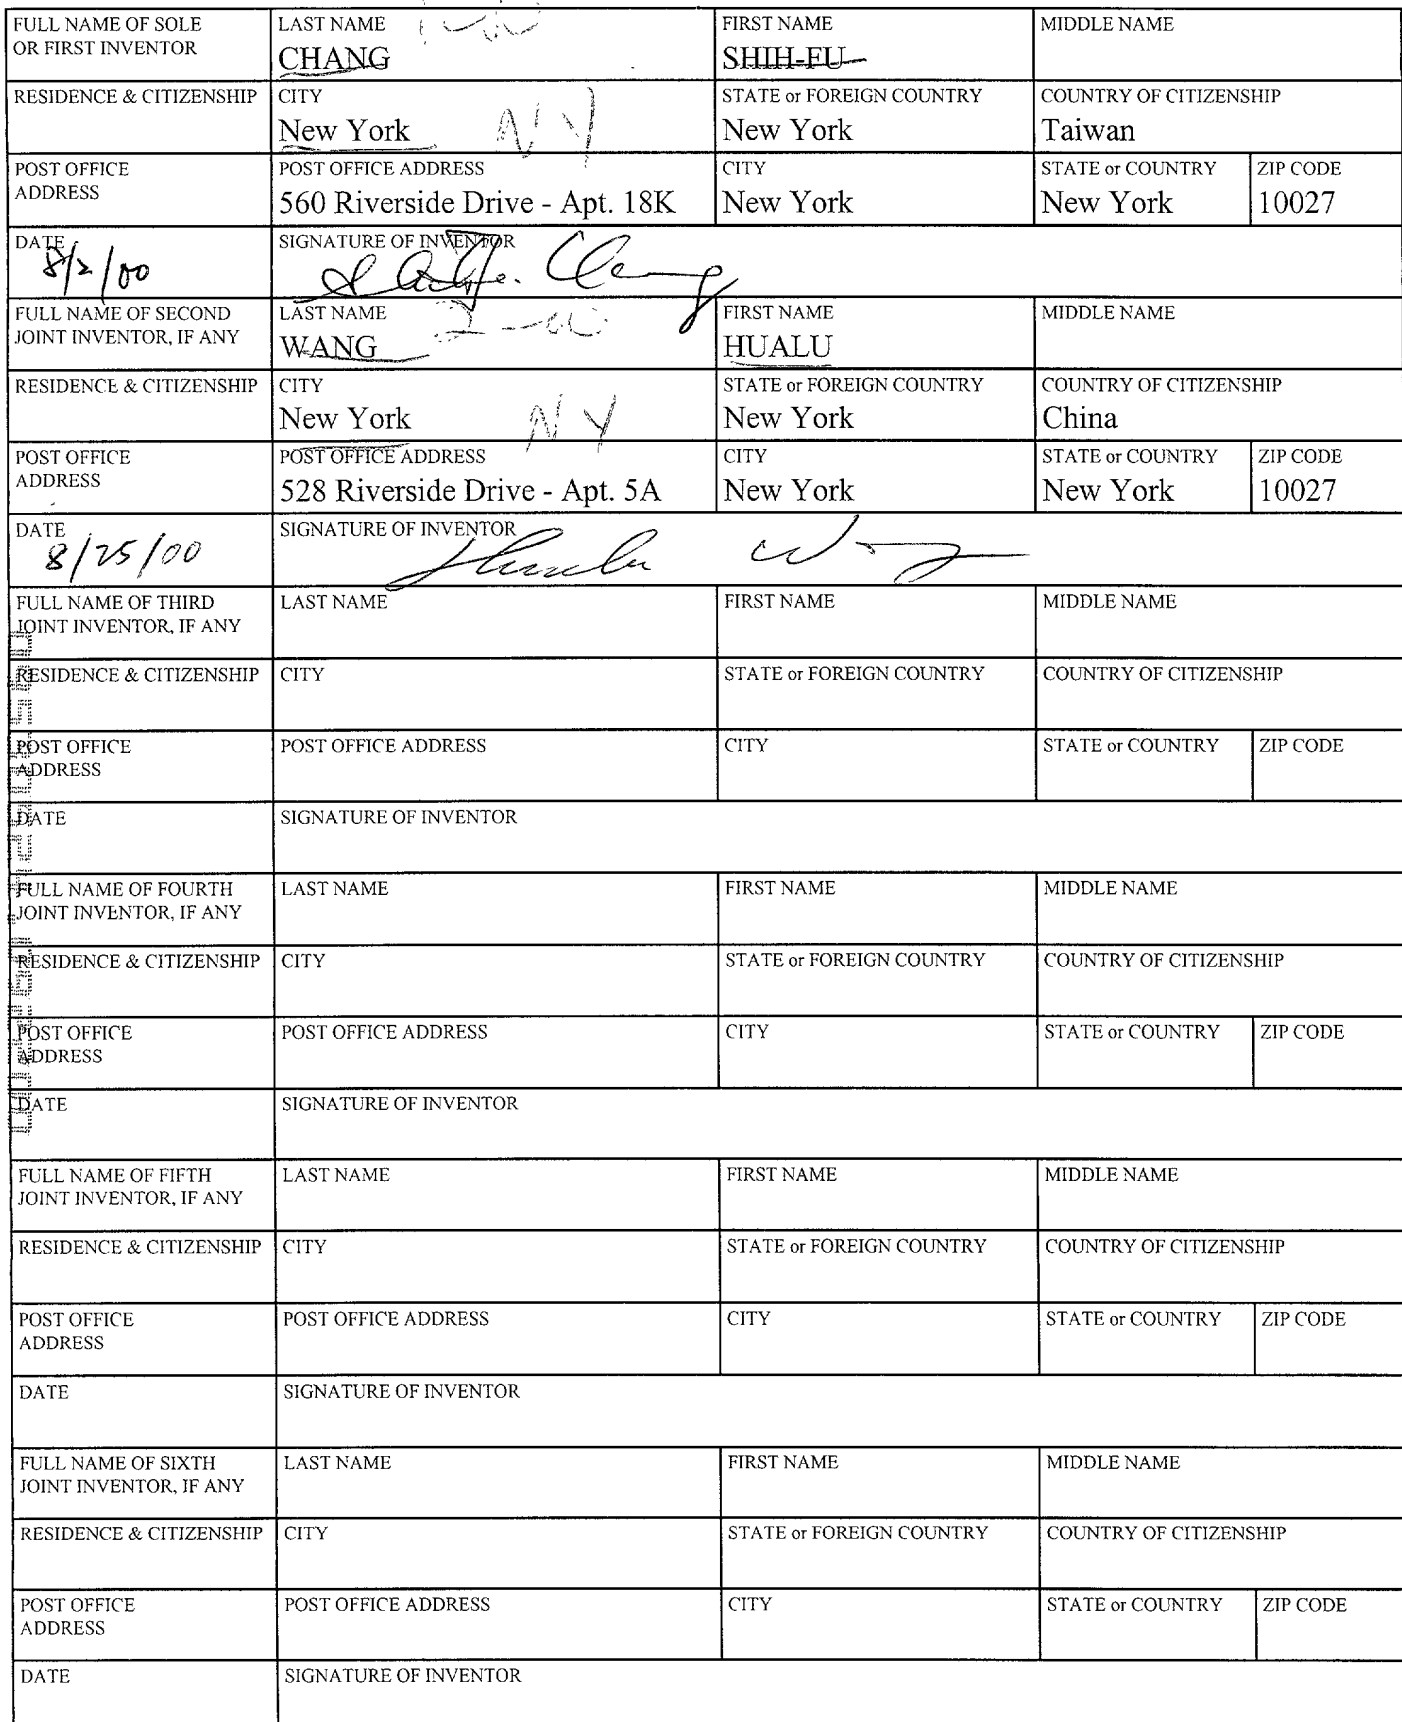 FULL NAME OF SOLE OR FIRST INVENTOR
LAST NAME
CHANG
FIRST NAME
SHIH-FU
MIDDLE NAME
RESIDENCE & CITIZENSHIP
CITY
New York NY
STATE or FOREIGN COUNTRY
New York
COUNTRY OF CITIZENSHIP
Taiwan
POST OFFICE ADDRESS
POST OFFICE ADDRESS
560 Riverside Drive - Apt. 18K
CITY
New York
STATE or COUNTRY
New York
ZIP CODE
10027
DATE
8/2/00
SIGNATURE OF INVENTOR
FULL NAME OF SECOND JOINT INVENTOR, IF ANY
LAST NAME
2-00
WANG
FIRST NAME
HUALU
MIDDLE NAME
RESIDENCE & CITIZENSHIP
CITY
New York NY
STATE or FOREIGN COUNTRY
New York
COUNTRY OF CITIZENSHIP
China
POST OFFICE ADDRESS
POST OFFICE ADDRESS
528 Riverside Drive - Apt. 5A
CITY
New York
STATE or COUNTRY
New York
ZIP CODE
10027
DATE
8/25/00
SIGNATURE OF INVENTOR
Hualu Wang
FULL NAME OF THIRD JOINT INVENTOR, IF ANY
LAST NAME
FIRST NAME
MIDDLE NAME
RESIDENCE & CITIZENSHIP
CITY
STATE or FOREIGN COUNTRY
COUNTRY OF CITIZENSHIP
POST OFFICE ADDRESS
POST OFFICE ADDRESS
CITY
STATE or COUNTRY
ZIP CODE
DATE
SIGNATURE OF INVENTOR
FULL NAME OF FOURTH JOINT INVENTOR, IF ANY
LAST NAME
FIRST NAME
MIDDLE NAME
RESIDENCE & CITIZENSHIP
CITY
STATE or FOREIGN COUNTRY
COUNTRY OF CITIZENSHIP
POST OFFICE ADDRESS
POST OFFICE ADDRESS
CITY
STATE or COUNTRY
ZIP CODE
DATE
SIGNATURE OF INVENTOR
FULL NAME OF FIFTH JOINT INVENTOR, IF ANY
LAST NAME
FIRST NAME
MIDDLE NAME
RESIDENCE & CITIZENSHIP
CITY
STATE or FOREIGN COUNTRY
COUNTRY OF CITIZENSHIP
POST OFFICE ADDRESS
POST OFFICE ADDRESS
CITY
STATE or COUNTRY
ZIP CODE
DATE
SIGNATURE OF INVENTOR
FULL NAME OF SIXTH JOINT INVENTOR, IF ANY
LAST NAME
FIRST NAME
MIDDLE NAME
RESIDENCE & CITIZENSHIP
CITY
STATE or FOREIGN COUNTRY
COUNTRY OF CITIZENSHIP
POST OFFICE ADDRESS
POST OFFICE ADDRESS
CITY
STATE or COUNTRY
ZIP CODE
DATE
SIGNATURE OF INVENTOR